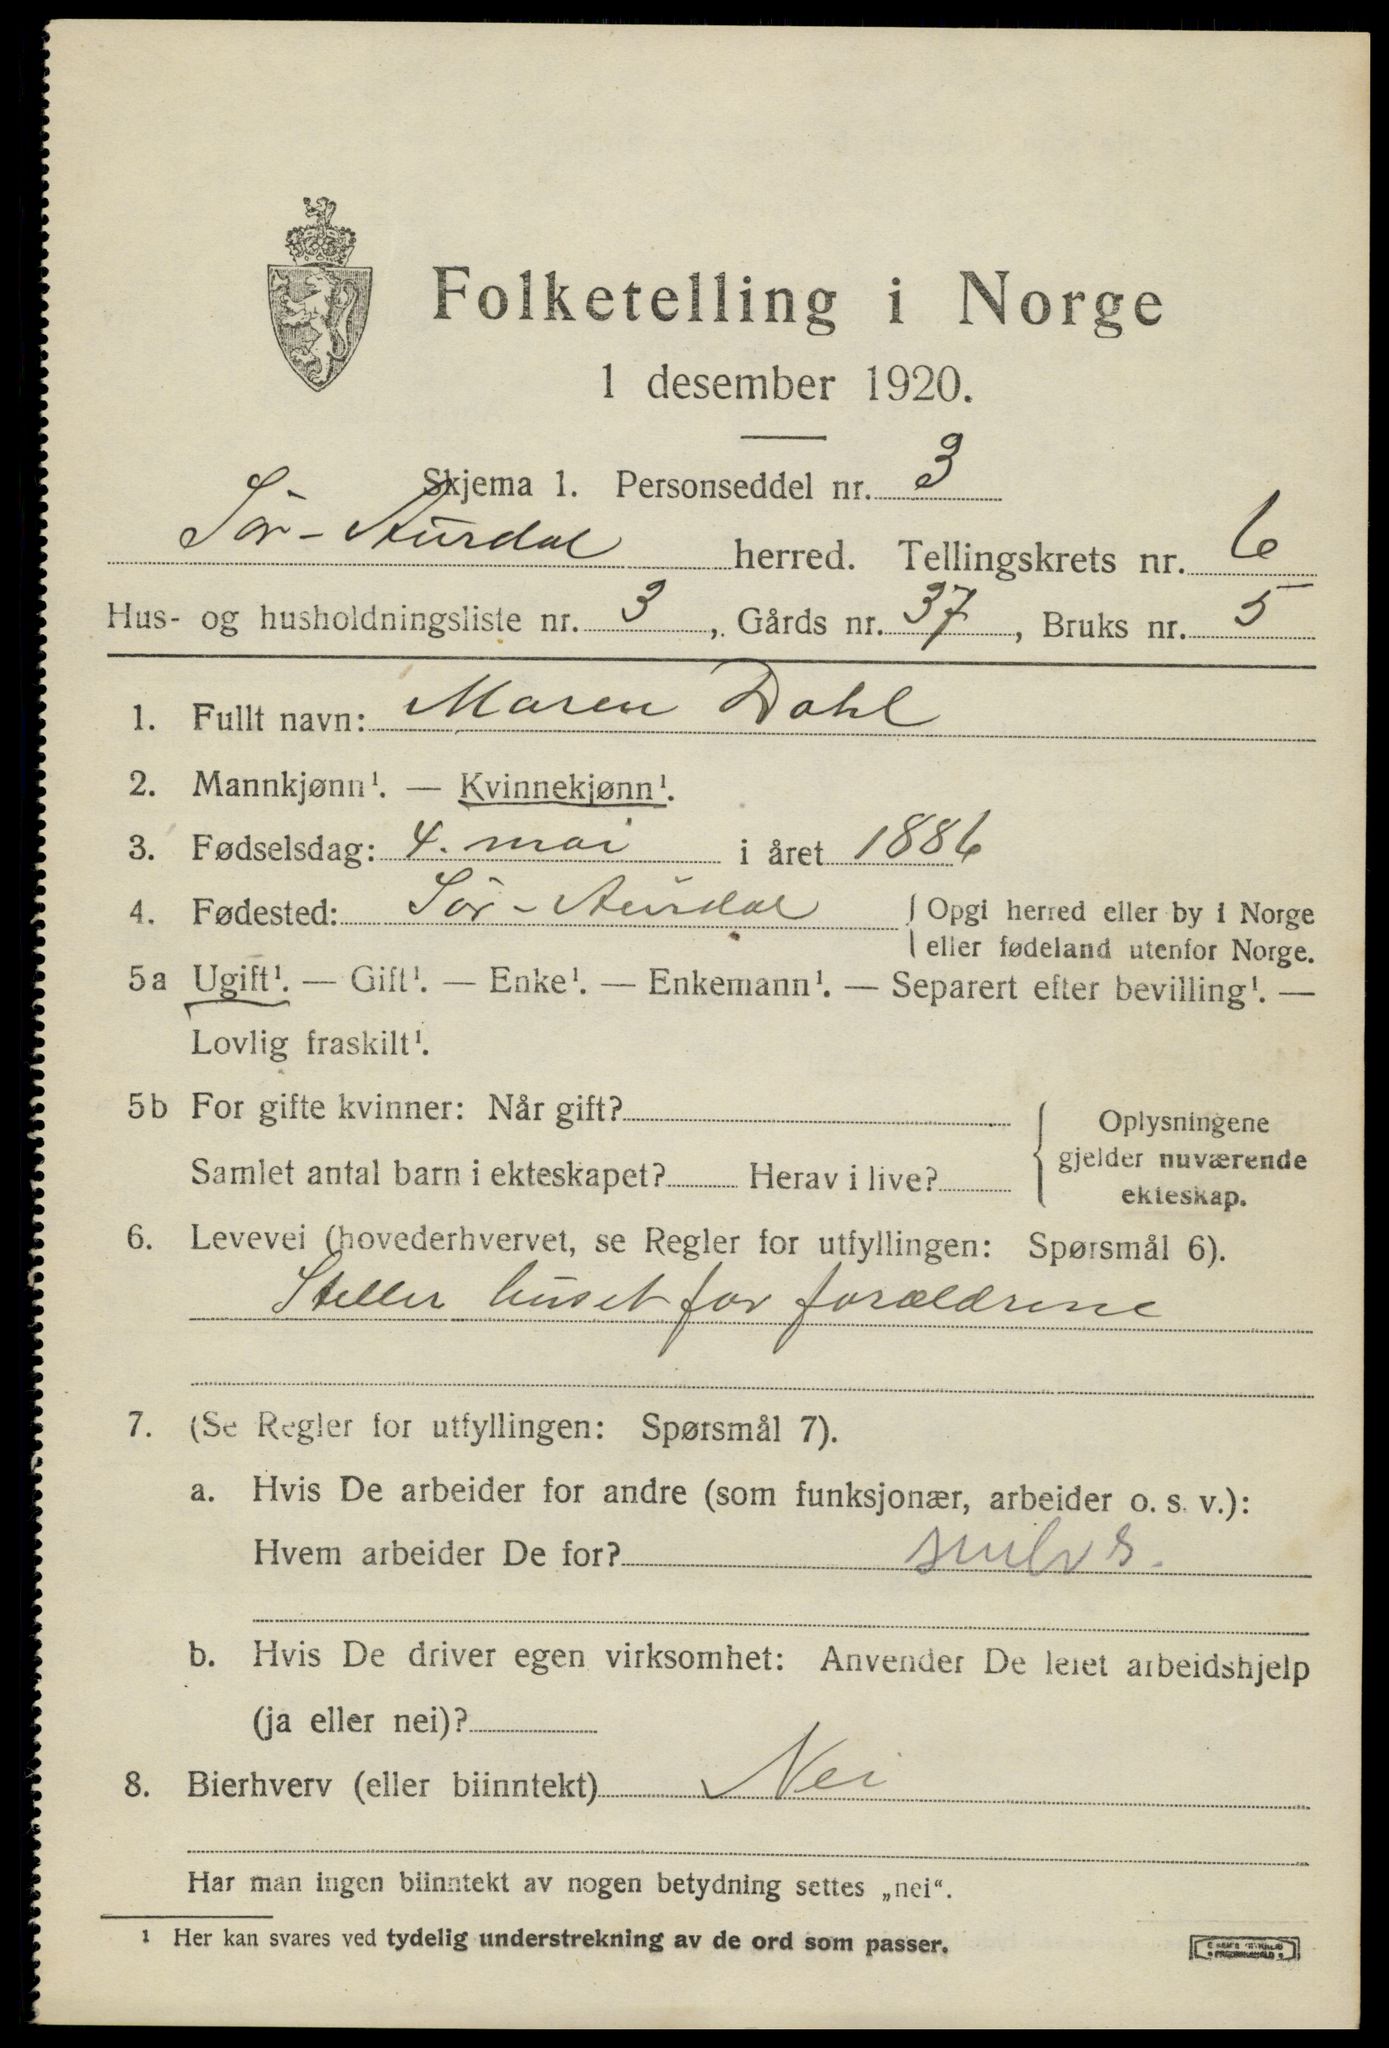 Folketelling i Norge
1 desember 1920.
Skjema 1. Personseddel nr. 3
Sør-Aurdal herred. Tellingskrets nr. 6
Hus- og husholdningsliste nr. 3, Gårds nr. 37, Bruks nr. 5
1. Fullt navn: Maren Dahl
2. Mannkjønn¹. — Kvinnekjønn¹.
3. Fødselsdag: 4. mai i året 1886
4. Fødested: Sør-Aurdal { Opgi herred eller by i Norge
eller fødeland utenfor Norge.
5a Ugift¹. — Gift¹. — Enke¹. — Enkemann¹. — Separert efter bevilling¹. —
Lovlig fraskilt¹.
5b For gifte kvinner: Når gift?
Samlet antal barn i ekteskapet? Herav i live?
Oplysningene
gjelder nuværende
ekteskap.
6. Levevei (hovederhvervet, se Regler for utfyllingen: Spørsmål 6).
Steller huset for forældrene
7. (Se Regler for utfyllingen: Spørsmål 7).
a. Hvis De arbeider for andre (som funksjonær, arbeider o. s. v.):
Hvem arbeider De for?
b. Hvis De driver egen virksomhet: Anvender De leiet arbeidshjelp
(ja eller nei)?
8. Bierhverv (eller biinntekt) Nei
Har man ingen biinntekt av nogen betydning settes „nei“.
¹ Her kan svares ved tydelig understrekning av de ord som passer.